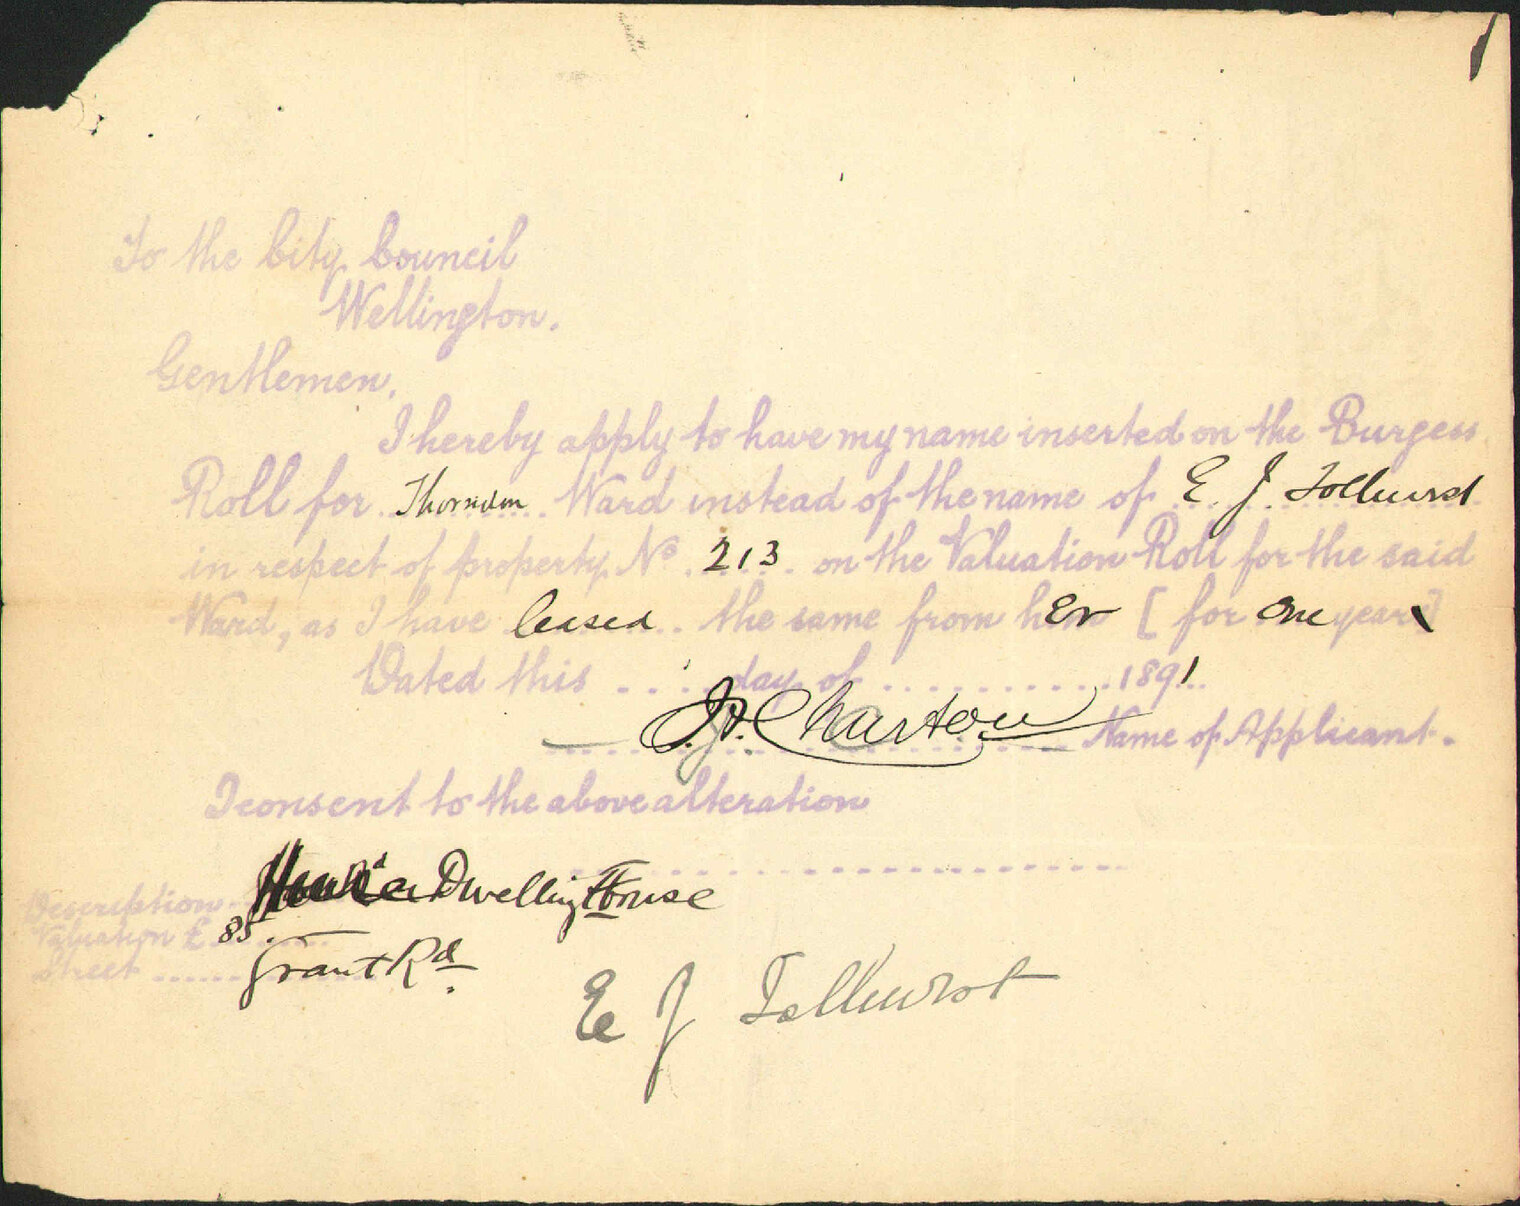 To the City Council
Wellington.
Gentlemen,
I hereby apply to have my name inserted on the Burgess
Roll for Thorndon Ward instead of the name of E. J. Tolhurst
in respect of property No 213 on the Valuation Roll for the said
Ward, as I have leased the same from her [for one year]
Dated this .... day of ............ 1891
Name of Applicant.
I consent to the above alteration
Dwelling House
Description
Valuation £ 85.
Street Grant Rd.
E J Tolhurst